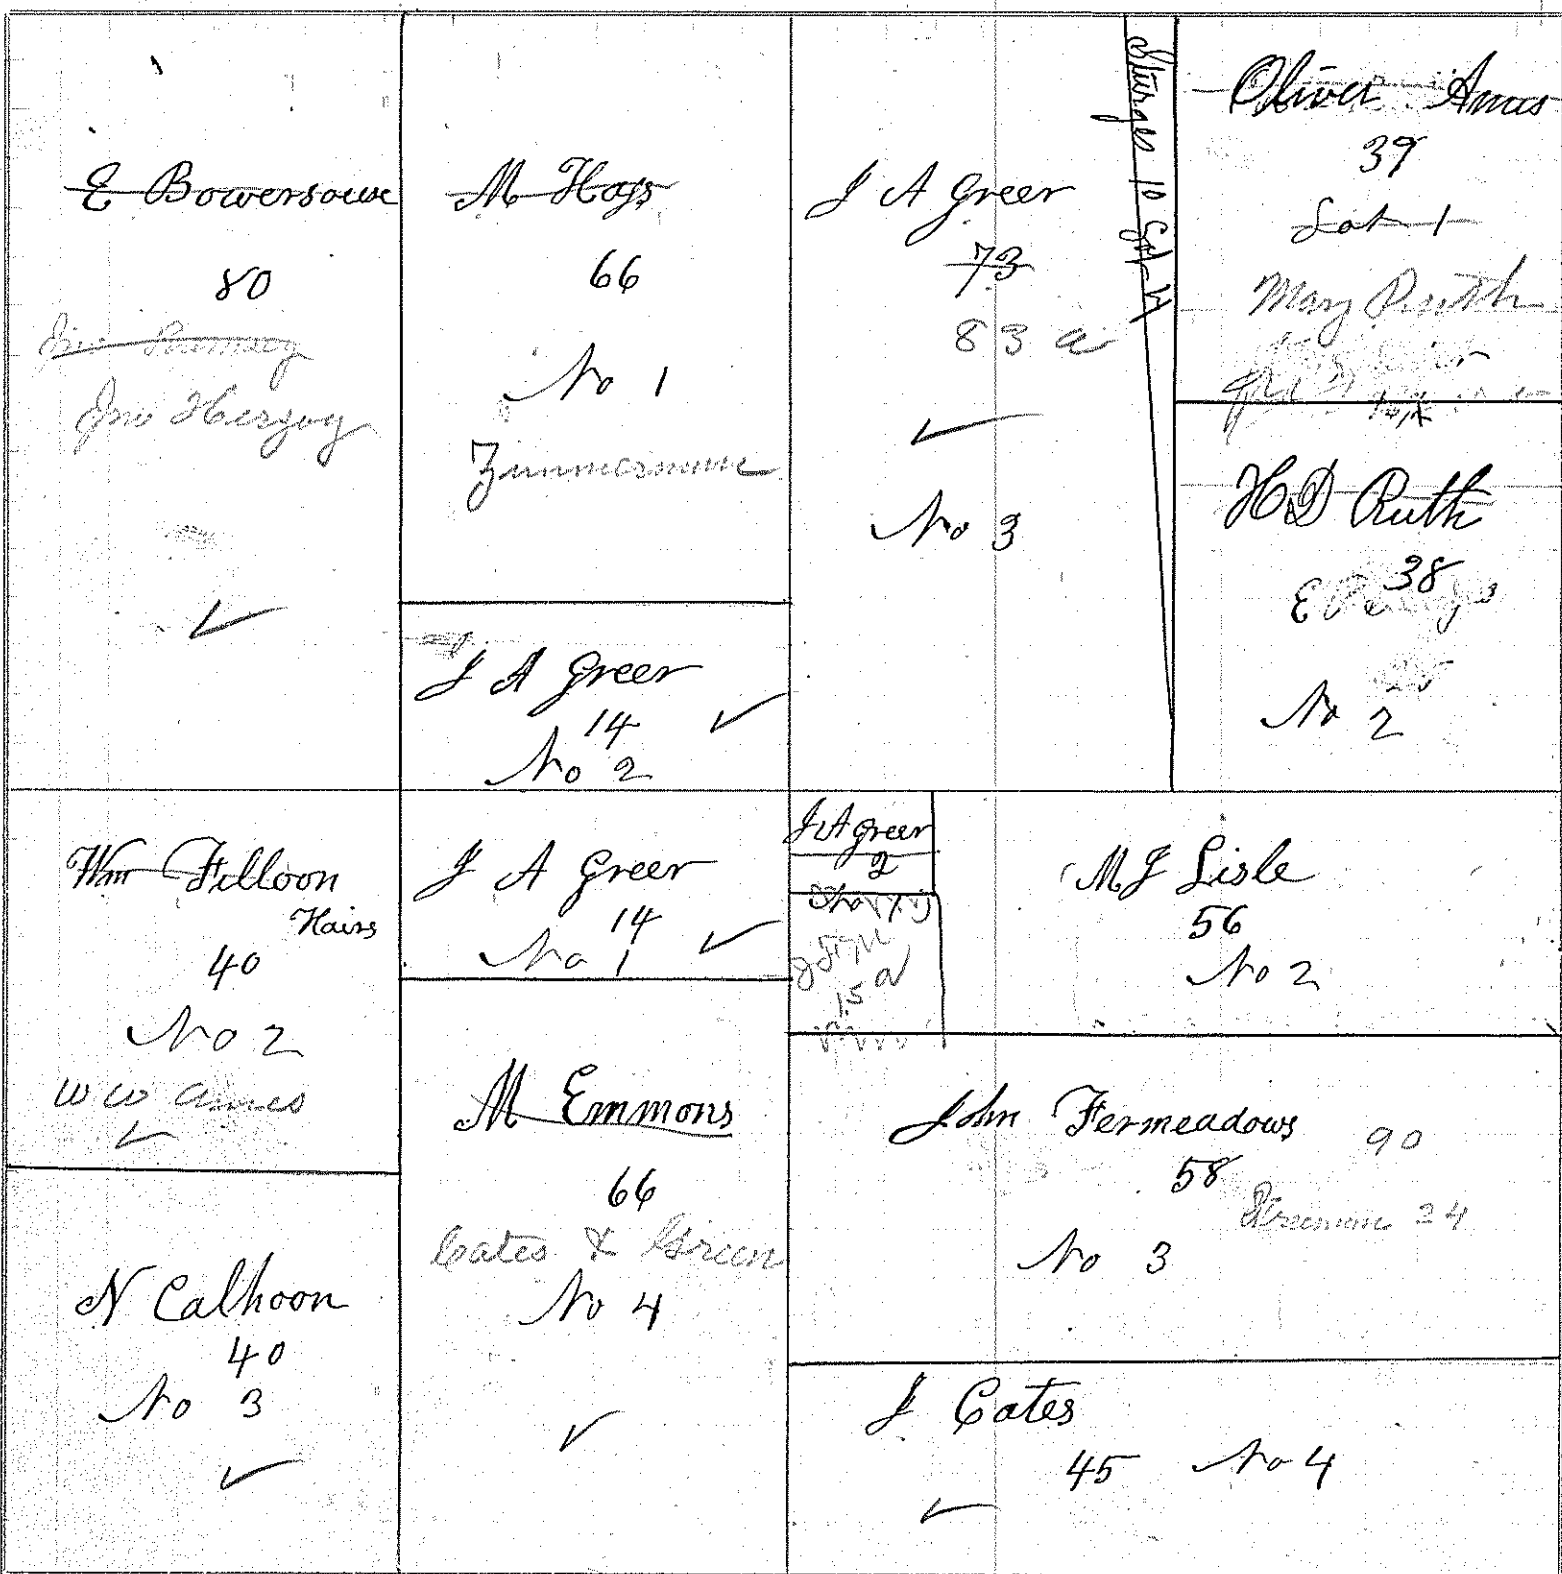 E Bowersouse
80
Jno Ramsey
Jno Herzog
M Hays
66
No 1
Zimmerman
J A Greer
14
No 2
J A Greer
73
83 a
No 3
Sturges 10
Oliver Ames
39
Lot 1
Mary Ruth
H D Ruth
38
No 2
Wm Filloon
Hairs
40
No 2
W W Ames
N Calhoon
40
No 3
J A Greer
14
No 1
M Emmons
66
Cates & Green
No 4
J A Greer
2
15 a
M J Lisle
56
No 2
John Fermeadows
90
58
24
No 3
J Cates
45 No 4